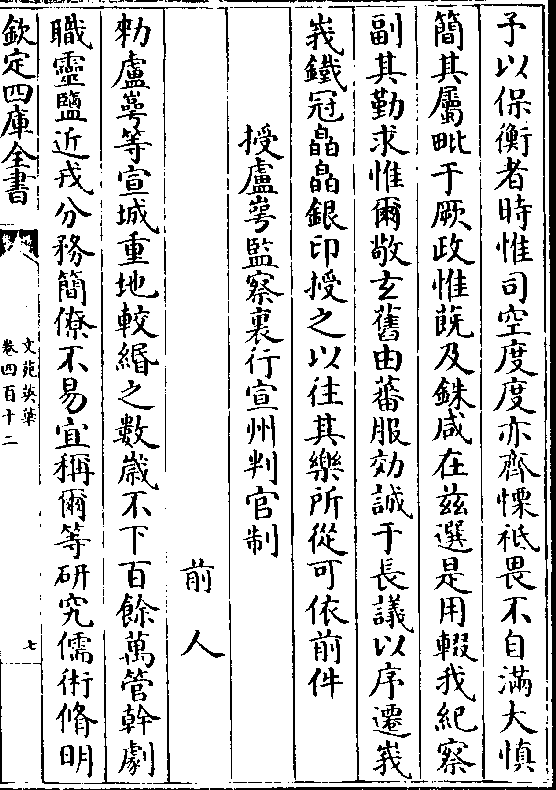 予以保衡者時惟司空度度亦齊慄祗畏不自滿大慎
簡其屬毗于厥政惟蕆及銖咸在茲選是用輟我紀察
副其勤求惟爾敬玄舊由蕃服効誠于長議以序遷峩
峩鐵冠皛皛銀印授之以往其樂所從可依前件
授盧㟧監察裏行宣州判官制
前人
勅盧㟧等宣城重地較緡之數嵗不下百餘萬管幹劇
職靈鹽近戎分務簡僚不易宜稱爾等研究儒術脩明
欽定四庫全書
文苑英華
卷四百十二
七